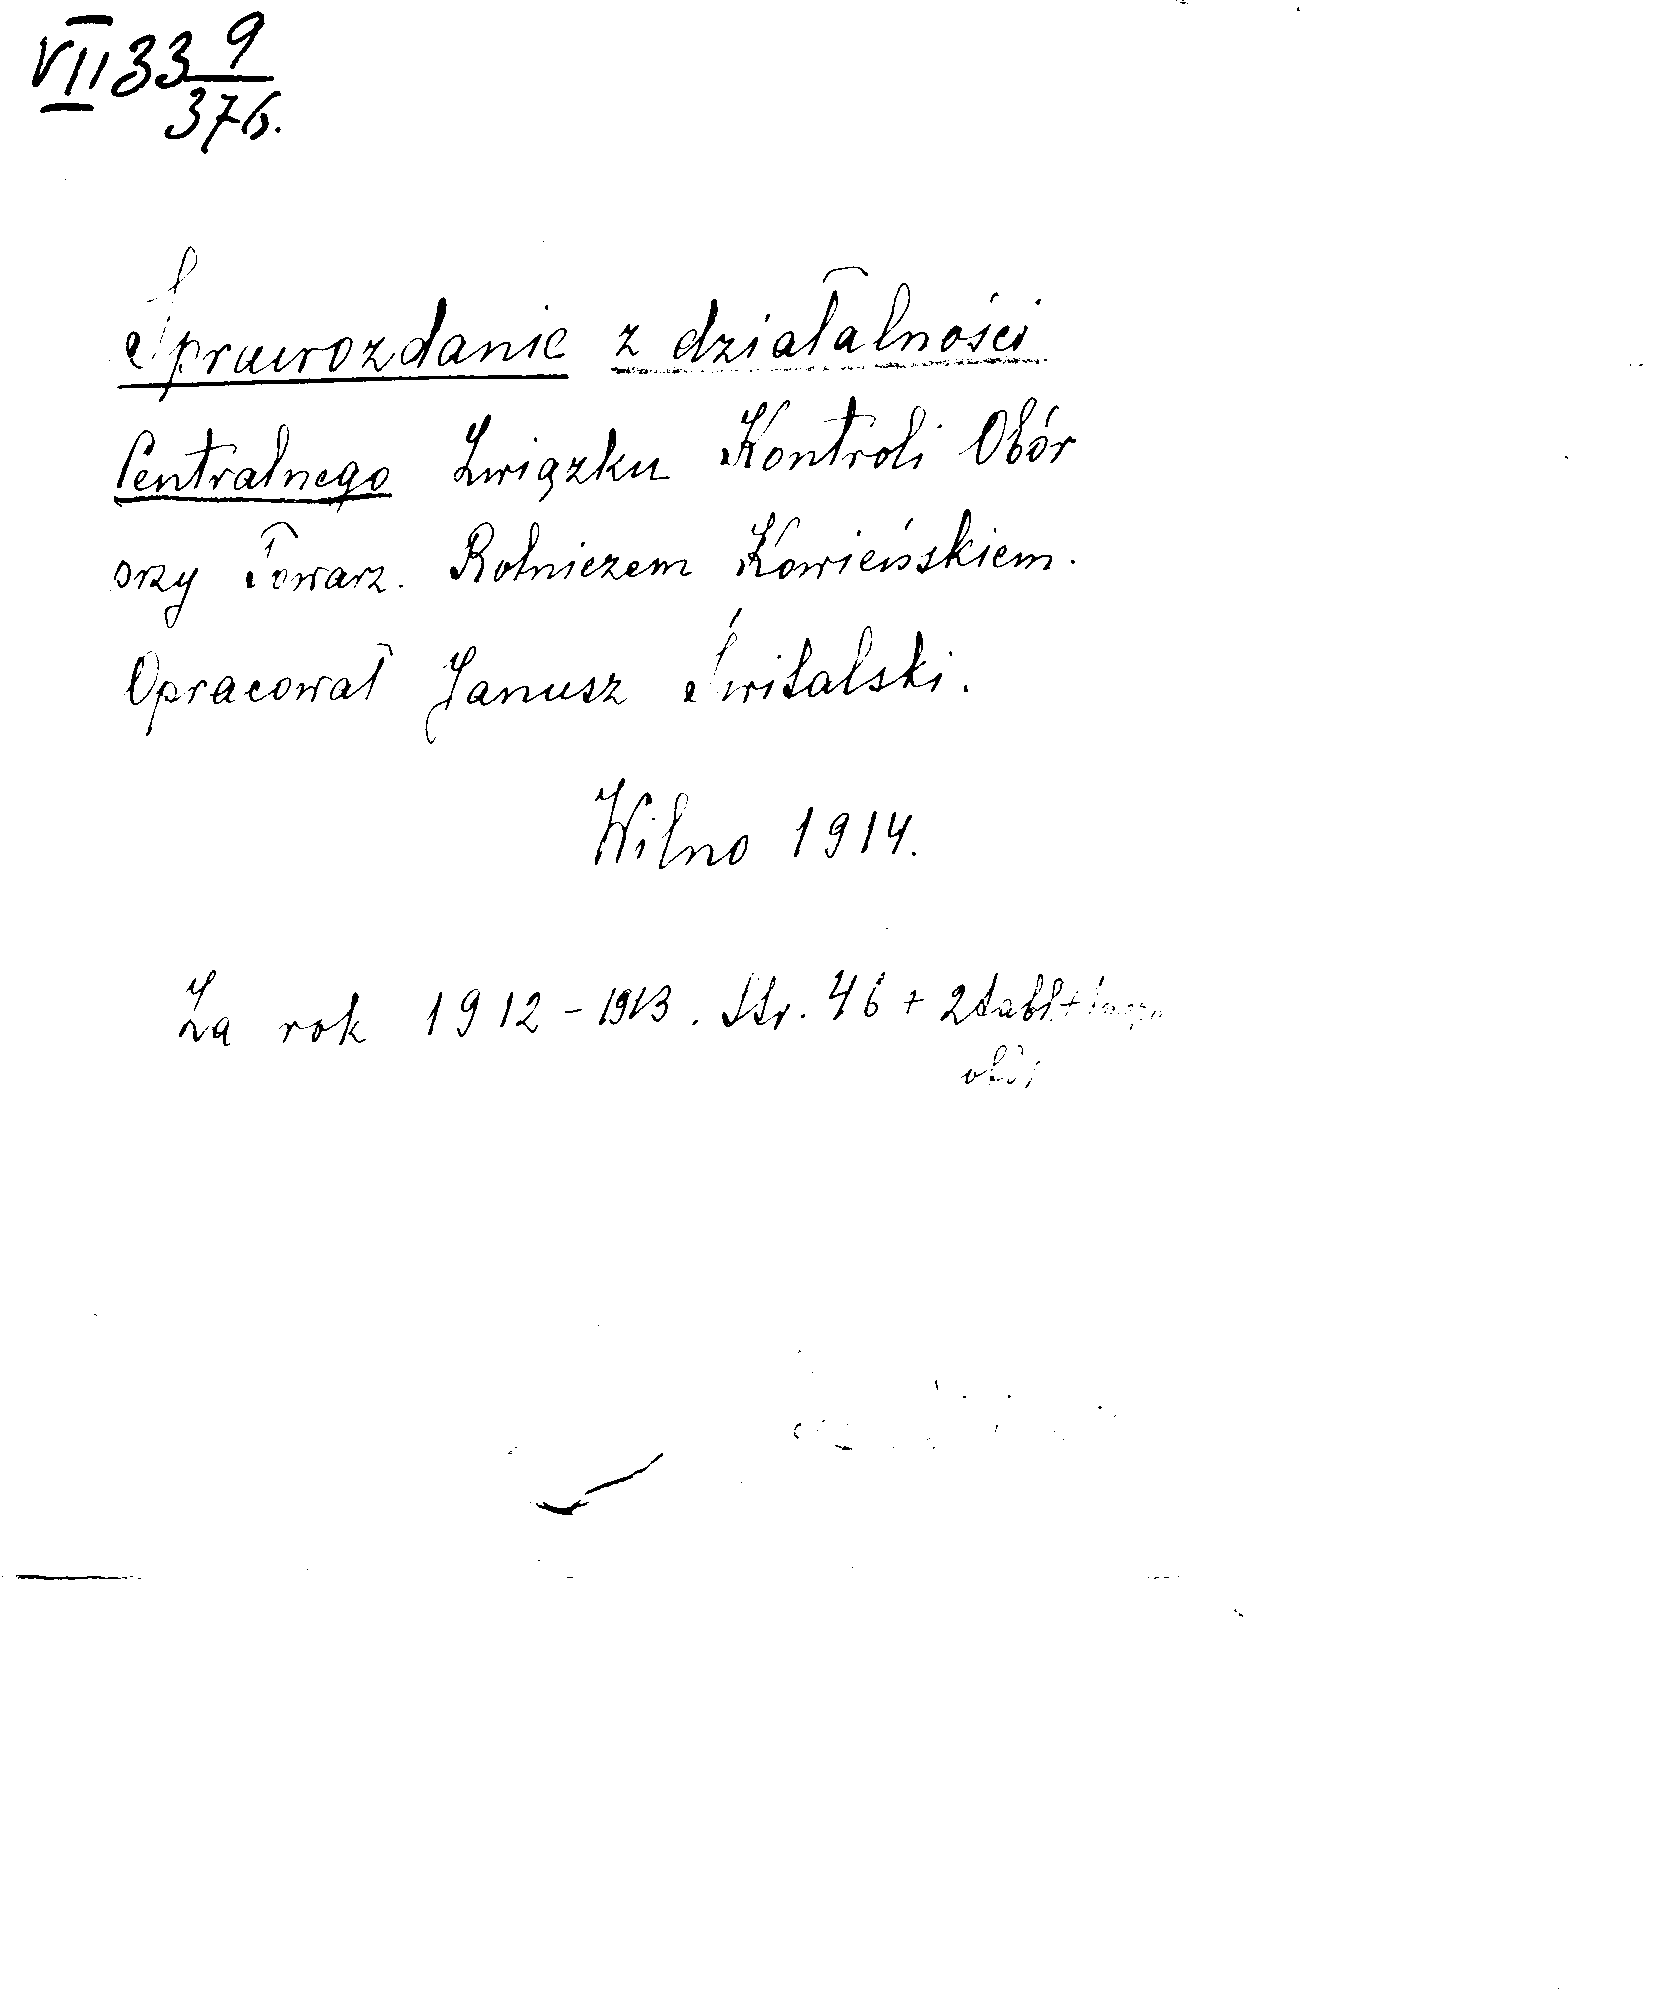 VII 33 9/376.
Sprawozdanie z działalności
Centralnego Związku Kontroli Obór
przy Towarz. Rolniczem Kowieńskiem.
Opracował Janusz Świtalski.
Wilno 1914.
Za rok 1912-1913. Str. 46 + 2 tabl +